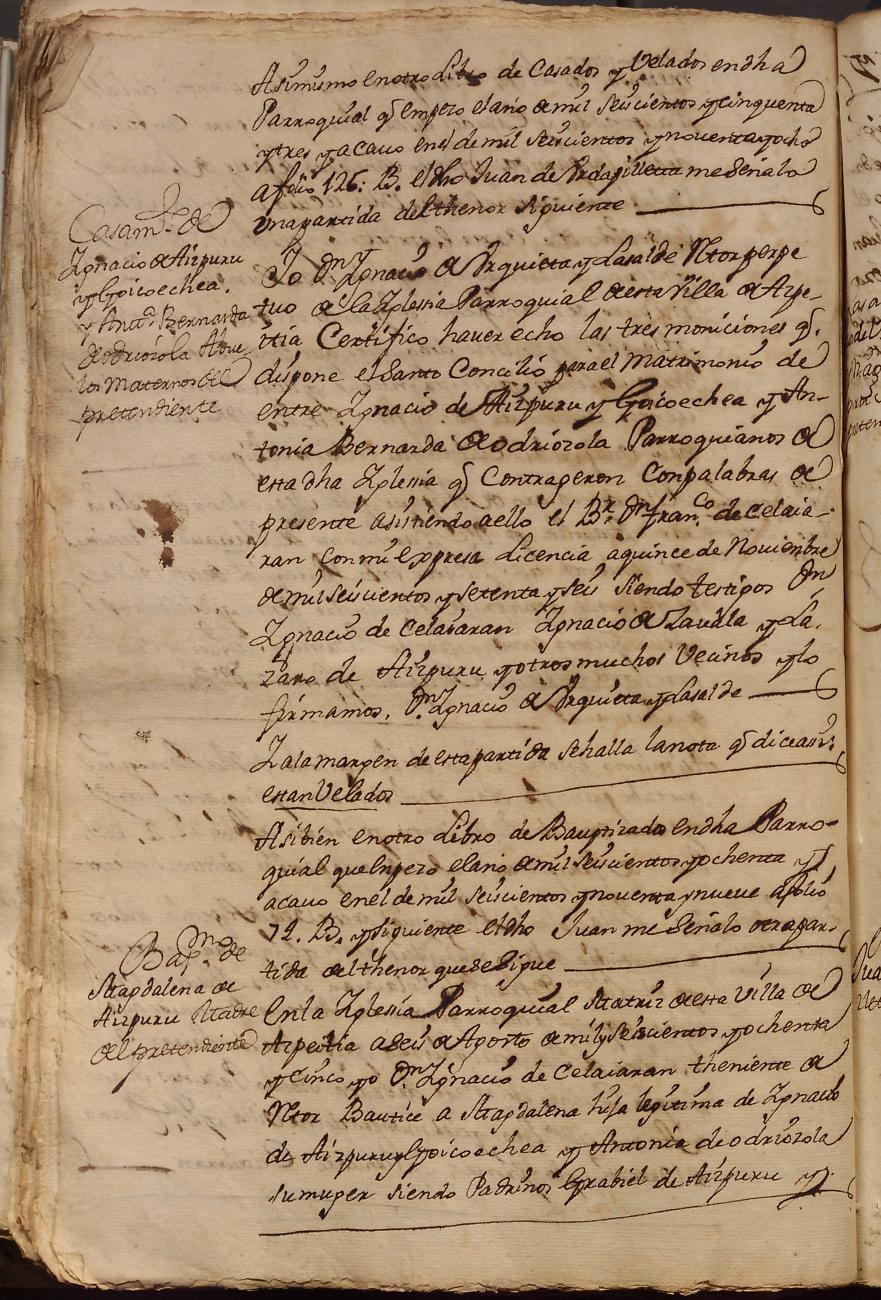 Asimismo en otro Libro de Casados y Velados en dha
Parroquial q̃ empezo el año de mil seiscientos y cinquenta
y tres y acavo en el de mil seiscientos y noventa y ocho
a folio 126: B. el dho Juan de me señalo
una partida del thenor siguiente
Casam.to de
Ignacio de Aizpuru
y Goicoechea.
y Ant.a Bernarda
de odriozola Abue-
los Maternos del
pretendiente
Yo Dn Ignacio de Urquietta y Lasalde Rtor perpe
tuo de la Iglesia Parroquial de esta Villa de Azpe-
itia Certifico haver echo las tres moniciones q̃
dispone el Santo Concilio para el Matrimonio de
entre Ignacio de Aizpuru y Goicoechea y An-
tonia Bernarda de odriozola Parroquianos de
esta dha Iglesia q̃ Contrageron Con palabras de
presente asistiendo a ello el Br. Dn fran.co de Celaia-
ran con mi expresa Licencia a quince de Noviembre
de mil seiscientos y setenta y seis siendo testigos Dn
Ignacio de Celaiaran Ignacio de Zavala y La-
zaro de Aizpuru y otros muchos Vecinos y lo
firmamos. Dn Ignacio de Urquietta y Lasalde
I ala margen de esta partida se halla la nota q̃ dice assi:
estan Velados
Asibien en otro Libro de Bauptizados en dha Parro-
quial que Enpezo el año de mil seiscientos y ochenta y
acavo en el de mil seiscientos y noventa y nueve a folio
72. B. y siguiente el dho Juan me señalo otra par-
tida del thenor que se sigue
Bap.mo de
Magdalena de
Aizpuru Madre
del pretendiente
En la Iglesia Parroquial Matriz de esta Villa de
Azpeitia a seis de Agosto de mil y seiscientos y ochenta
y cinco yo Dn Ignacio de Celaiaran theniente de
Rtor Bautice a Magdalena hija legitima de Ignacio
de Aizpuru y Goicoechea y Antonia de odriozola
su muger siendo Padrinos Grabiel de Aizpuru y